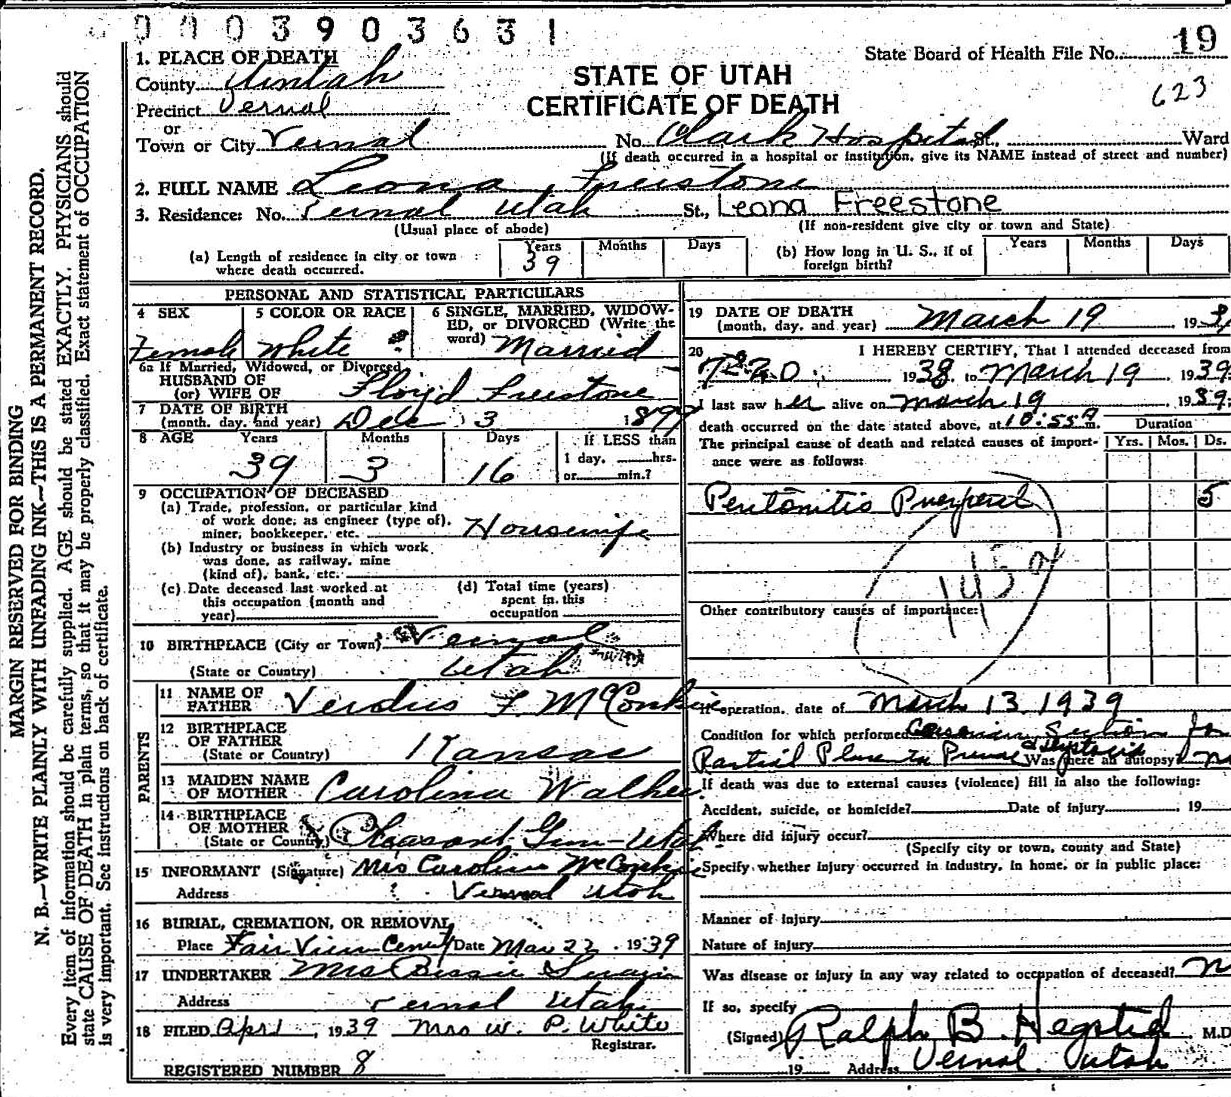 0003903631
19
State Board of Health File No.
623
STATE OF UTAH
CERTIFICATE OF DEATH
1. PLACE OF DEATH
County Uintah
Precinct Vernal
or
Town or City Vernal No. Clark Hospital St., Ward
(If death occurred in a hospital or institution, give its NAME instead of street and number)
2. FULL NAME Leona Freestone
3. Residence: No. Vernal Utah St., Leona Freestone
(Usual place of abode) (If non-resident give city or town and State)
(a) Length of residence in city or town where death occurred. Years 39 Months Days
(b) How long in U. S., if of foreign birth? Years Months Days
PERSONAL AND STATISTICAL PARTICULARS
4 SEX Female
5 COLOR OR RACE White
6 SINGLE, MARRIED, WIDOW-
ED, or DIVORCED (Write the
word) Married
6a If Married, Widowed, or Divorced
HUSBAND OF
(or) WIFE OF Floyd Freestone
7 DATE OF BIRTH
(month, day, and year) Dec 3 1899
8 AGE Years 39 Months 3 Days 16 If LESS than
1 day, hrs.
or min.?
9 OCCUPATION OF DECEASED
(a) Trade, profession, or particular kind
of work done, as engineer (type of),
miner, bookkeeper, etc. Housewife
(b) Industry or business in which work
was done, as railway, mine
(kind of), bank, etc.
(c) Date deceased last worked at
this occupation (month and
year)
(d) Total time (years)
spent in this
occupation
10 BIRTHPLACE (City or Town) Vernal
(State or Country) Utah
PARENTS
11 NAME OF
FATHER Verdius F McConkie
12 BIRTHPLACE
OF FATHER
(State or Country) Kansas
13 MAIDEN NAME
OF MOTHER Carolina Walker
14 BIRTHPLACE
OF MOTHER
(State or Country) Pleasant Grove - Utah
15 INFORMANT (Signature) Mrs Caroline McConkie
Address Vernal Utah
16 BURIAL, CREMATION, OR REMOVAL
Place Fair View Cemet Date Mar 22, 1939
17 UNDERTAKER Mrs Bessie Swain
Address Vernal Utah
18 FILED April, 1939 Mrs W. P. White
Registrar.
REGISTERED NUMBER 8
19 DATE OF DEATH
(month, day, and year) March 19 193
20 I HEREBY CERTIFY, That I attended deceased from
1938, to March 19, 1939
I last saw her alive on March 19 1939
death occurred on the date stated above, at 10:55 a m.
Duration
The principal cause of death and related causes of import-
ance were as follows:
Yrs. Mos. Ds.
Peritonitis Puerperal 5
145a
Other contributory causes of importance:
If operation, date of March 13 1939
Condition for which performed Cesarian Section for
Partial Placenta & Dystocia Was there an autopsy? no
If death was due to external causes (violence) fill in also the following:
Accident, suicide, or homicide? Date of injury 19
Where did injury occur?
(Specify city or town, county and State)
Specify whether injury occurred in industry, in home, or in public place:
Manner of injury
Nature of injury
Was disease or injury in any way related to occupation of deceased? no
If so, specify
(Signed) Ralph B. Hegsted M.D
19 Address Vernal Utah
MARGIN RESERVED FOR BINDING
N. B.—WRITE PLAINLY WITH UNFADING INK—THIS IS A PERMANENT RECORD.
Every item of information should be carefully supplied. AGE should be stated EXACTLY. PHYSICIANS should
state CAUSE OF DEATH in plain terms, so that it may be properly classified. Exact statement of OCCUPATION
is very important. See instructions on back of certificate.